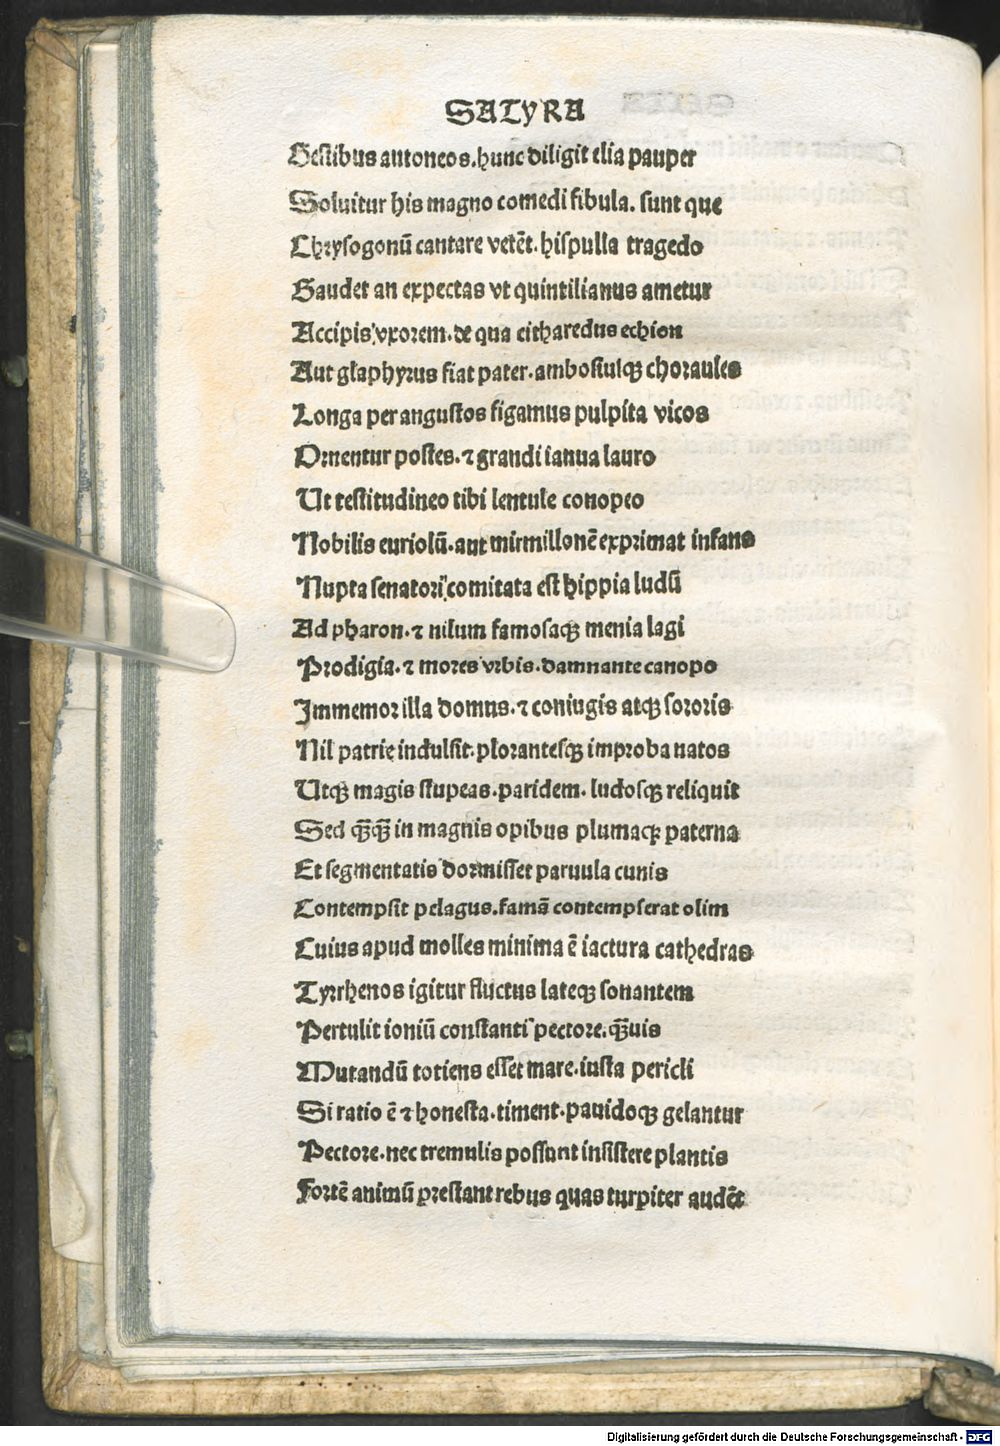 SATYRA
Gestibus autoneos. hunc diligit elia pauper
Soluitur his magno comedi fibula. sunt que
Chrysogonū cantare vetēt. hispulla tragedo
Gaudet an expectas vt quintilianus ametur
Accipis vxorem. de qua citharedus echion
Aut glaphyrus fiat pater. ambosiusqꝫ choraules
Longa per angustos figamus pulpita vicos
Ornentur postes. ⁊ grandi ianua lauro
Ut testitudineo tibi lentule conopeo
Nobilis euriolū. aut mirmillonē exprimat infans
Nupta senatori comitata est hippia ludū
Ad pharon. ⁊ nilum famosaqꝫ menia lagi
Prodigia. ⁊ mores vrbis. damnante canopo
Immemor illa domus. ⁊ coniugis atqꝫ sororis
Nil patrię indulsit. plorantesqꝫ improba natos
Utqꝫ magis stupeas. paridem. ludosqꝫ reliquit
Sed qꝫ̄qꝫ̄ in magnis opibus plumaqꝫ paterna
Et segmentatis dormisset paruula cunis
Contempsit pelagus. famā contempserat olim
Cuius apud molles minima ē iactura cathedras
Tyrrhenos igitur fluctus lateqꝫ sonantem
Pertulit ioniū constanti pectore. qꝫ̄uis
Mutandū totiens esset mare. iusta pericli
Si ratio ē ⁊ honesta. timent. pauidoqꝫ gelantur
Pectore. nec tremulis possunt insistere plantis
Fortē animū prestant rebus quas turpiter audēt
Digitalisierung gefördert durch die Deutsche Forschungsgemeinschaft - DFG